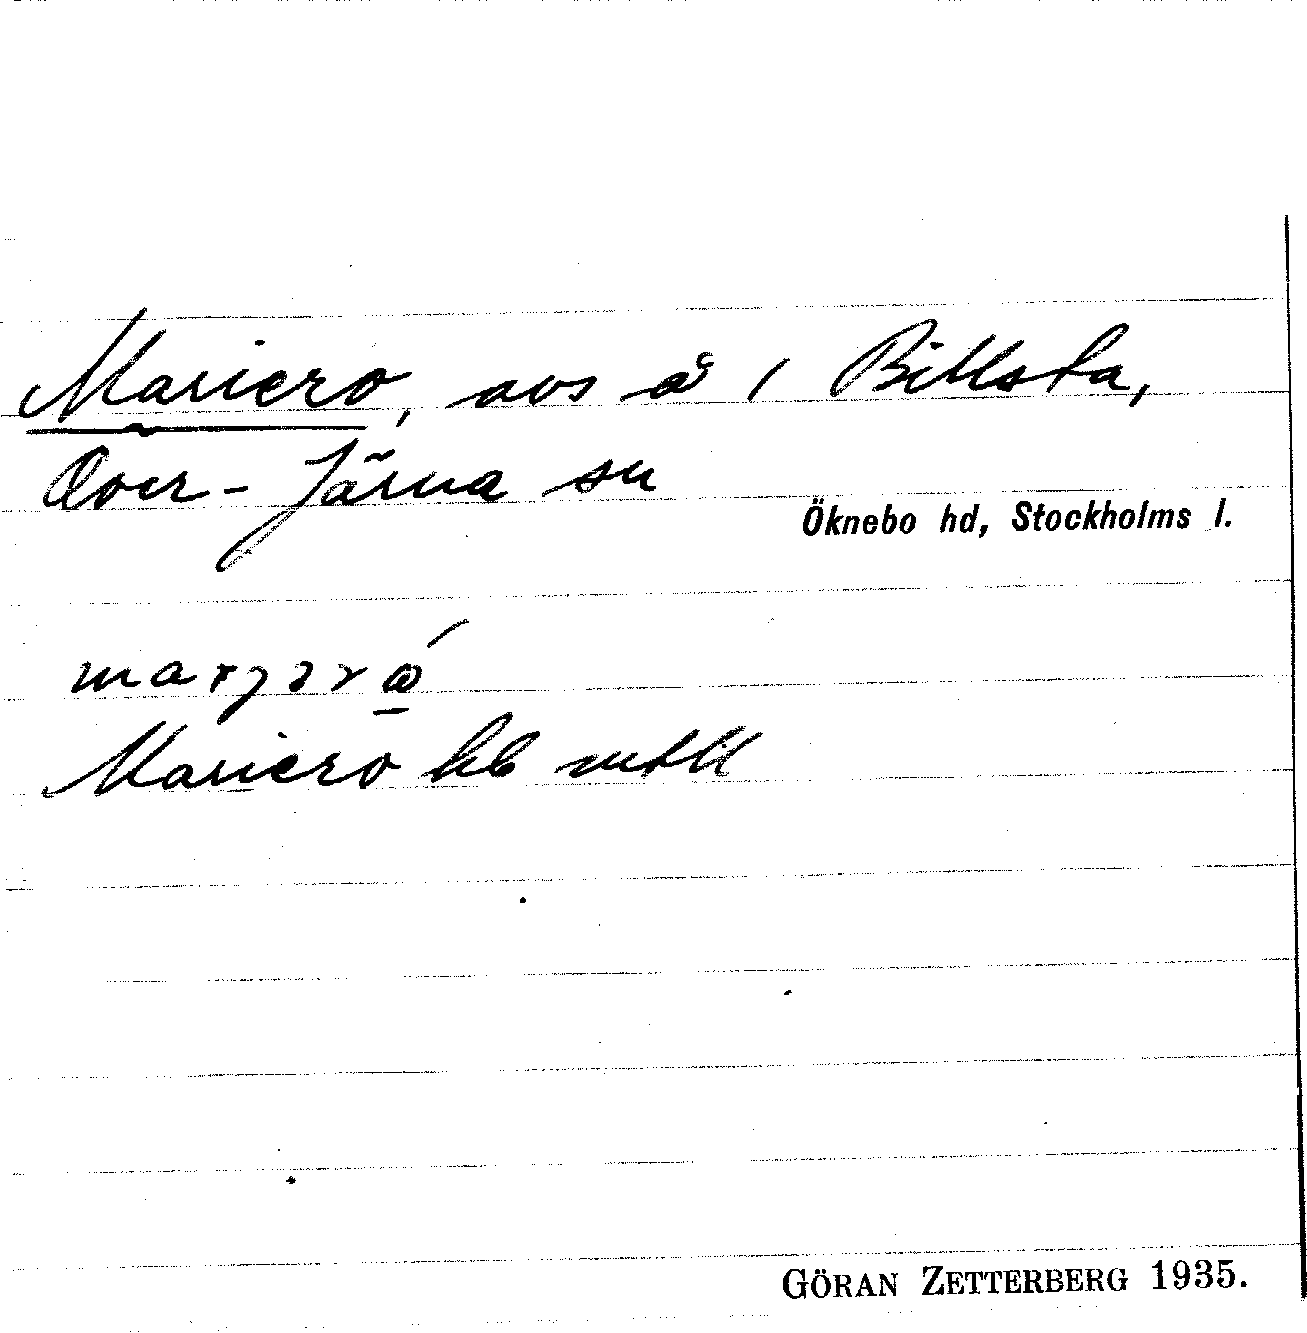 Mariero, avs å i Billsta,
Över-Järna sn
Öknebo hd, Stockholms l.
Mariero hb mtbl
GÖRAN ZETTERBERG 1935.